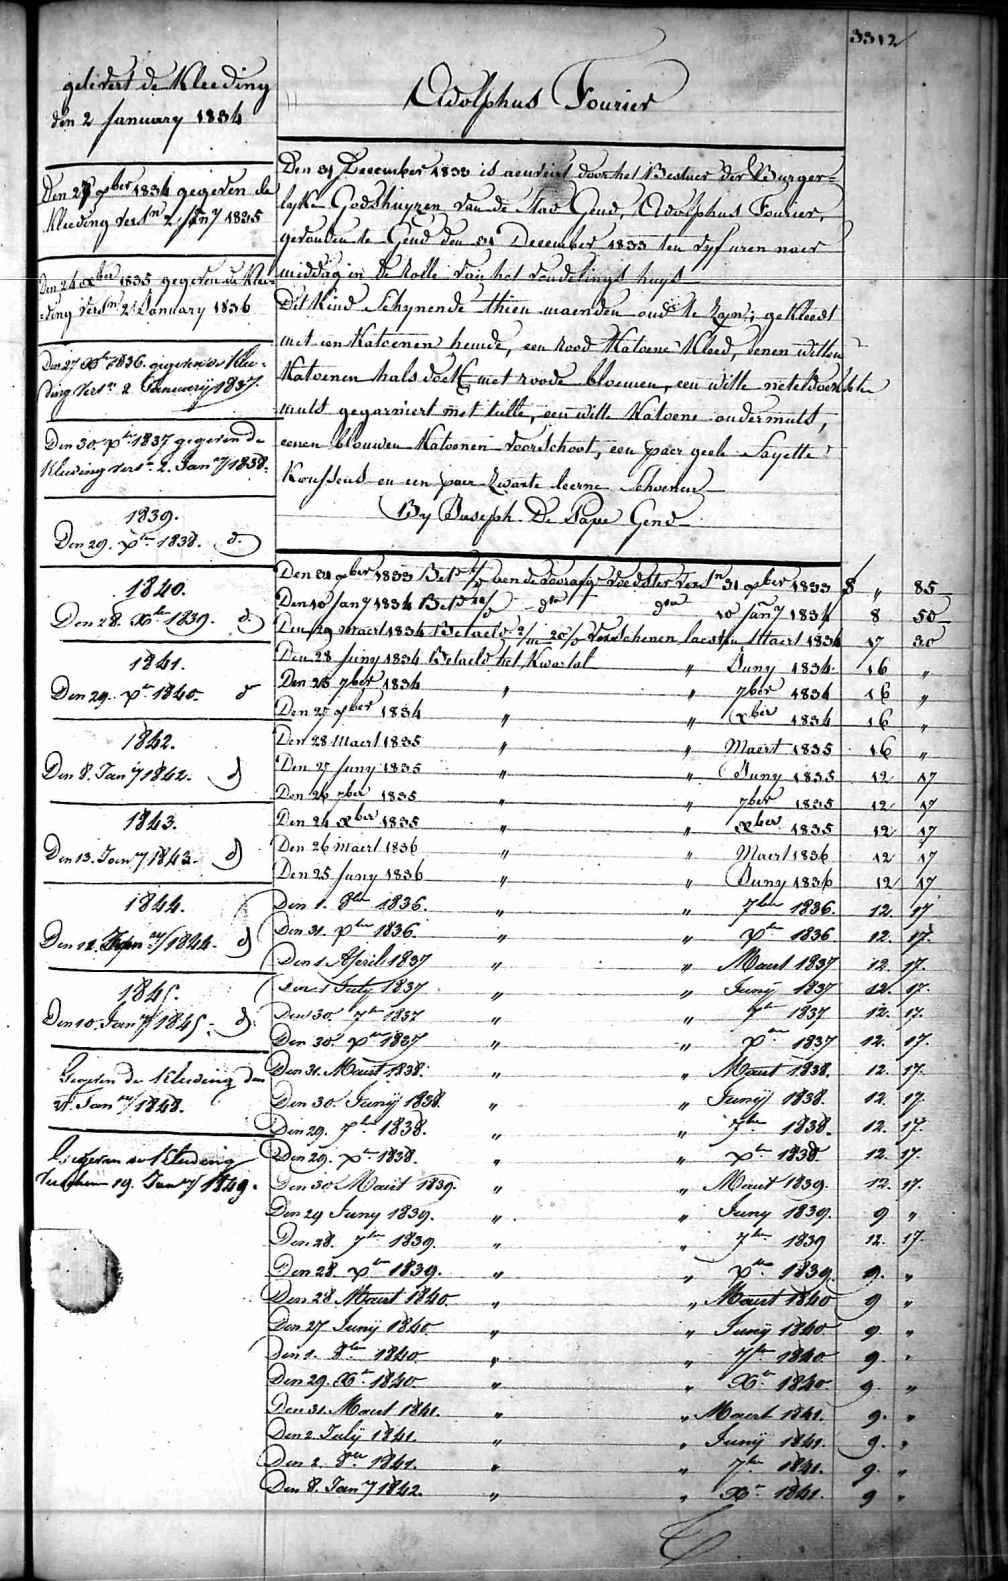 3312
gelevert de Kleeding
den 2 January 1834
Den 27 9ber 1834 gegeven de
Kleeding versn 2 Jany 1835
Den 24 xber 1835 gegeven de Klee-
ding versn 2 January 1836
Den 27 Xr 1836. gegeven de Klee-
ding Versn 2 Januarij 1837.
Den 30. xr 1837 gegeven de
Kleeding versn 2. Jany 1838.
1839.
Den 29. xr 1838. d.
1840.
Den 28. Xr 1839. d.
1841.
Den 29. xr 1840. d
1842.
Den 8. Jany 1842. d
1843.
Den 13. Jany 1843. d
1844.
Den 12. Jany 1844. d
1845.
Den 10. Jany 1845. d.
Gegeven de Kleeding den
21. Jany 1848.
Gegeven de Kleeding
19. Jany 1849.
Adolphus Fourier
Den 31 December 1833 is door het Bestuer der Burger-
lyke Godshuyzen van de Stad Gend, Adolphus Fourier,
gevonden te Gend den 31 December 1833 ten vyf uren naer
middag in de Rolle van het vondelings huys
Dit Kind Schynende thien maenden oud te zyn; gekleedt
met een Katoenen hemde, een rood Katoene Kleed, eenen witten
Katoenen halsdoek met roode bloemen, een witte neteldoeksche
muts gegarniert met tulle, een witte Katoene ondermuts,
eenen blouwen Katoenen Voorschoot, een paer geele Sayette
Koussens en een paer zwarte leerne Schoenen
By Joseph De Pape Gend
Den 31 xber 1833 Betd vensn 31 xber 1833 8 " 85
Den 10 Jany 1834 Betd dto dto 10 Jany 1834 8 50
Den 29 Maert 1834 Betaeld verschenen laesten Maert 1834 17 30
Den 28 Juny 1834 Betaeld het Kwartal " Juny 1834 16 "
Den 25 7ber 1834 " " 7ber 1834 16 "
Den 27 9ber 1834 " " xber 1834 16 "
Den 28 Maert 1835 " " Maert 1835 16 "
Den 27 Juny 1835 " " Juny 1835 12 17
Den 26 7ber 1835 " " 7ber 1835 12 17
Den 24 xber 1835 " " xber 1835 12 17
Den 26 maert 1836 " " Maert 1836 12 17
Den 25 Juny 1836 " " Juny 1836 12 17
Den 1. 8ber 1836. " " 7ber 1836. 12. 17
Den 31. xber 1836 " " xr 1836 12. 17.
Den 1 April 1837 " " Maert 1837 12. 17.
Den 1 July 1837 " " Junij 1837 12. 17.
Den 30. 7br 1837 " " 7br 1837 12. 17.
Den 30. xbr 1837 " " xbr 1837 12. 17.
Den 31. Maert 1838. " " Maert 1838. 12. 17.
Den 30. Junij 1838. " " Junij 1838. 12. 17.
Den 29. 7br 1838. " " 7br 1838. 12. 17.
Den 29. xbr 1838. " " xbr 1838. 12. 17.
Den 30 Maert 1839. " " Maert 1839. 12. 17.
Den 29 Juny 1839. " " Juny 1839. 9 "
Den 28. 7br 1839. " " 7br 1839 12. 17.
Den 28. xbr 1839. " " xbr 1839. 9. "
Den 28 Maert 1840. " " Maert 1840 9 "
Den 27 Junij 1840. " " Junij 1840 9. "
Den 1. 8br 1840. " " 7br 1840 9. "
Den 29. Xr 1840. " " Xr 1840. 9. "
Den 31. Maert 1841. " " Maert 1841. 9. "
Den 2 Julij 1841. " " Junij 1841. 9. "
Den 2. 8br 1841. " " 7br 1841. 9. "
Den 8. Jany 1842. " " Xr 1841. 9 "